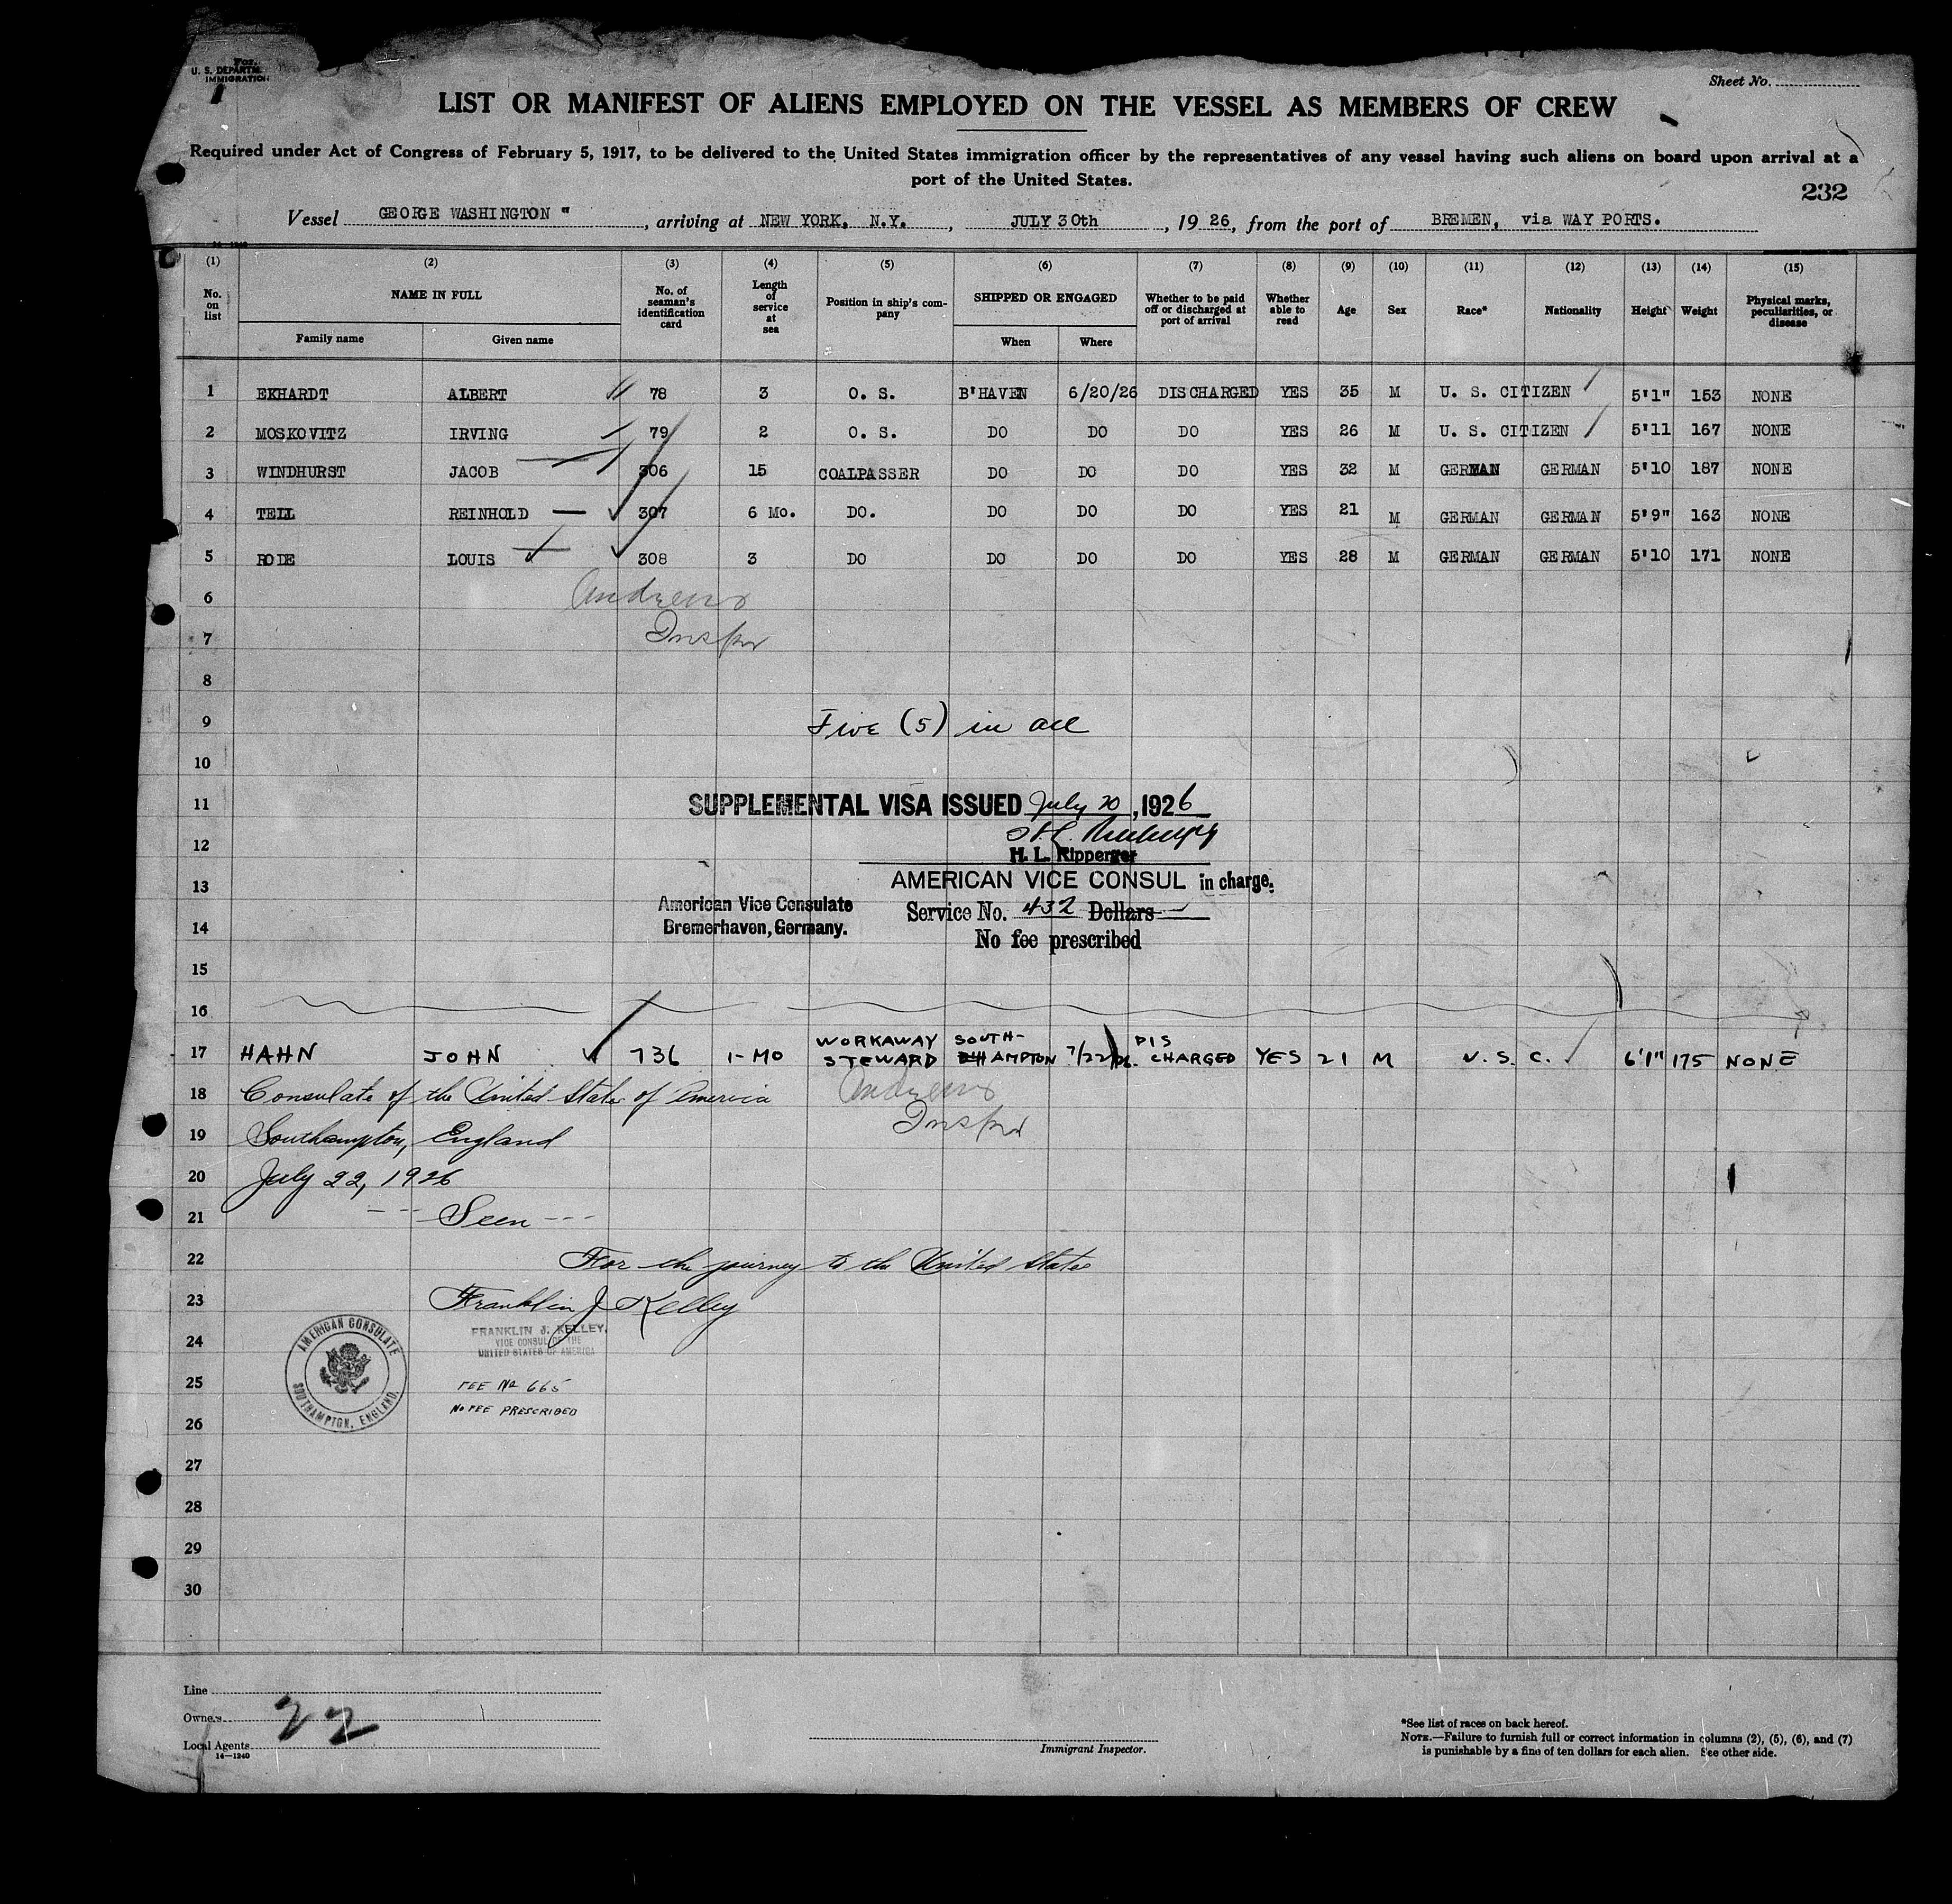 For
U. S. DEPARTM
IMMIGRATION
1
Sheet No.
LIST OR MANIFEST OF ALIENS EMPLOYED ON THE VESSEL AS MEMBERS OF CREW
Required under Act of Congress of February 5, 1917, to be delivered to the United States immigration officer by the representatives of any vessel having such aliens on board upon arrival at a
port of the United States.
232
Vessel GEORGE WASHINGTON ", arriving at NEW YORK, N.Y., JULY 30th, 1926, from the port of BREMEN, via WAY PORTS.
14—1240
(1) (2) (3) (4) (5) (6) (7) (8) (9) (10) (11) (12) (13) (14) (15)
No. on list NAME IN FULL Family name Given name No. of seaman's identification card Length of service at sea Position in ship's company SHIPPED OR ENGAGED When Where Whether to be paid off or discharged at port of arrival Whether able to read Age Sex Race* Nationality Height Weight Physical marks, peculiarities, or disease
1 EKHARDT ALBERT 78 3 O. S. B'HAVEN 6/20/26 DISCHARGED YES 35 M U. S. CITIZEN 5'1" 153 NONE
2 MOSKOVITZ IRVING 79 2 O. S. DO DO DO YES 26 M U. S. CITIZEN 5'11 167 NONE
3 WINDHURST JACOB 306 15 COALPASSER DO DO DO YES 32 M GERMAN GERMAN 5'10 187 NONE
4 TELL REINHOLD 307 6 Mo. DO. DO DO DO YES 21 M GERMAN GERMAN 5'9" 163 NONE
5 RODE LOUIS 308 3 DO DO DO DO YES 28 M GERMAN GERMAN 5'10 171 NONE
6 Andrews
7 Inspr
8
9 Five (5) in all
10
11 SUPPLEMENTAL VISA ISSUED July 20, 1926
12 H. L. Ripperger
13 AMERICAN VICE CONSUL in charge.
American Vice Consulate Service No. 432 Dollars
14 Bremerhaven, Germany. No fee prescribed
15
16
17 HAHN JOHN 736 1-MO WORKAWAY STEWARD SOUTH-AMPTON 7/22/26. DISCHARGED YES 21 M U. S. C. 6'1" 175 NONE
18 Consulate of the United States of America Andrews
19 Southampton, England Inspr
20 July 22, 1926
21 -- Seen ---
22 For the journey to the United States
23 Franklin J Kelley
24 FRANKLIN J. KELLEY.
VICE CONSUL OF THE
UNITED STATES OF AMERICA
AMERICAN CONSULATE
SOUTHAMPTON, ENGLAND.
25 FEE No 665
NO FEE PRESCRIBED
26
27
28
29
30
Line
Owners
22
Local Agents
14—1240
Immigrant Inspector.
*See list of races on back hereof.
NOTE.—Failure to furnish full or correct information in columns (2), (5), (6), and (7)
is punishable by a fine of ten dollars for each alien. See other side.